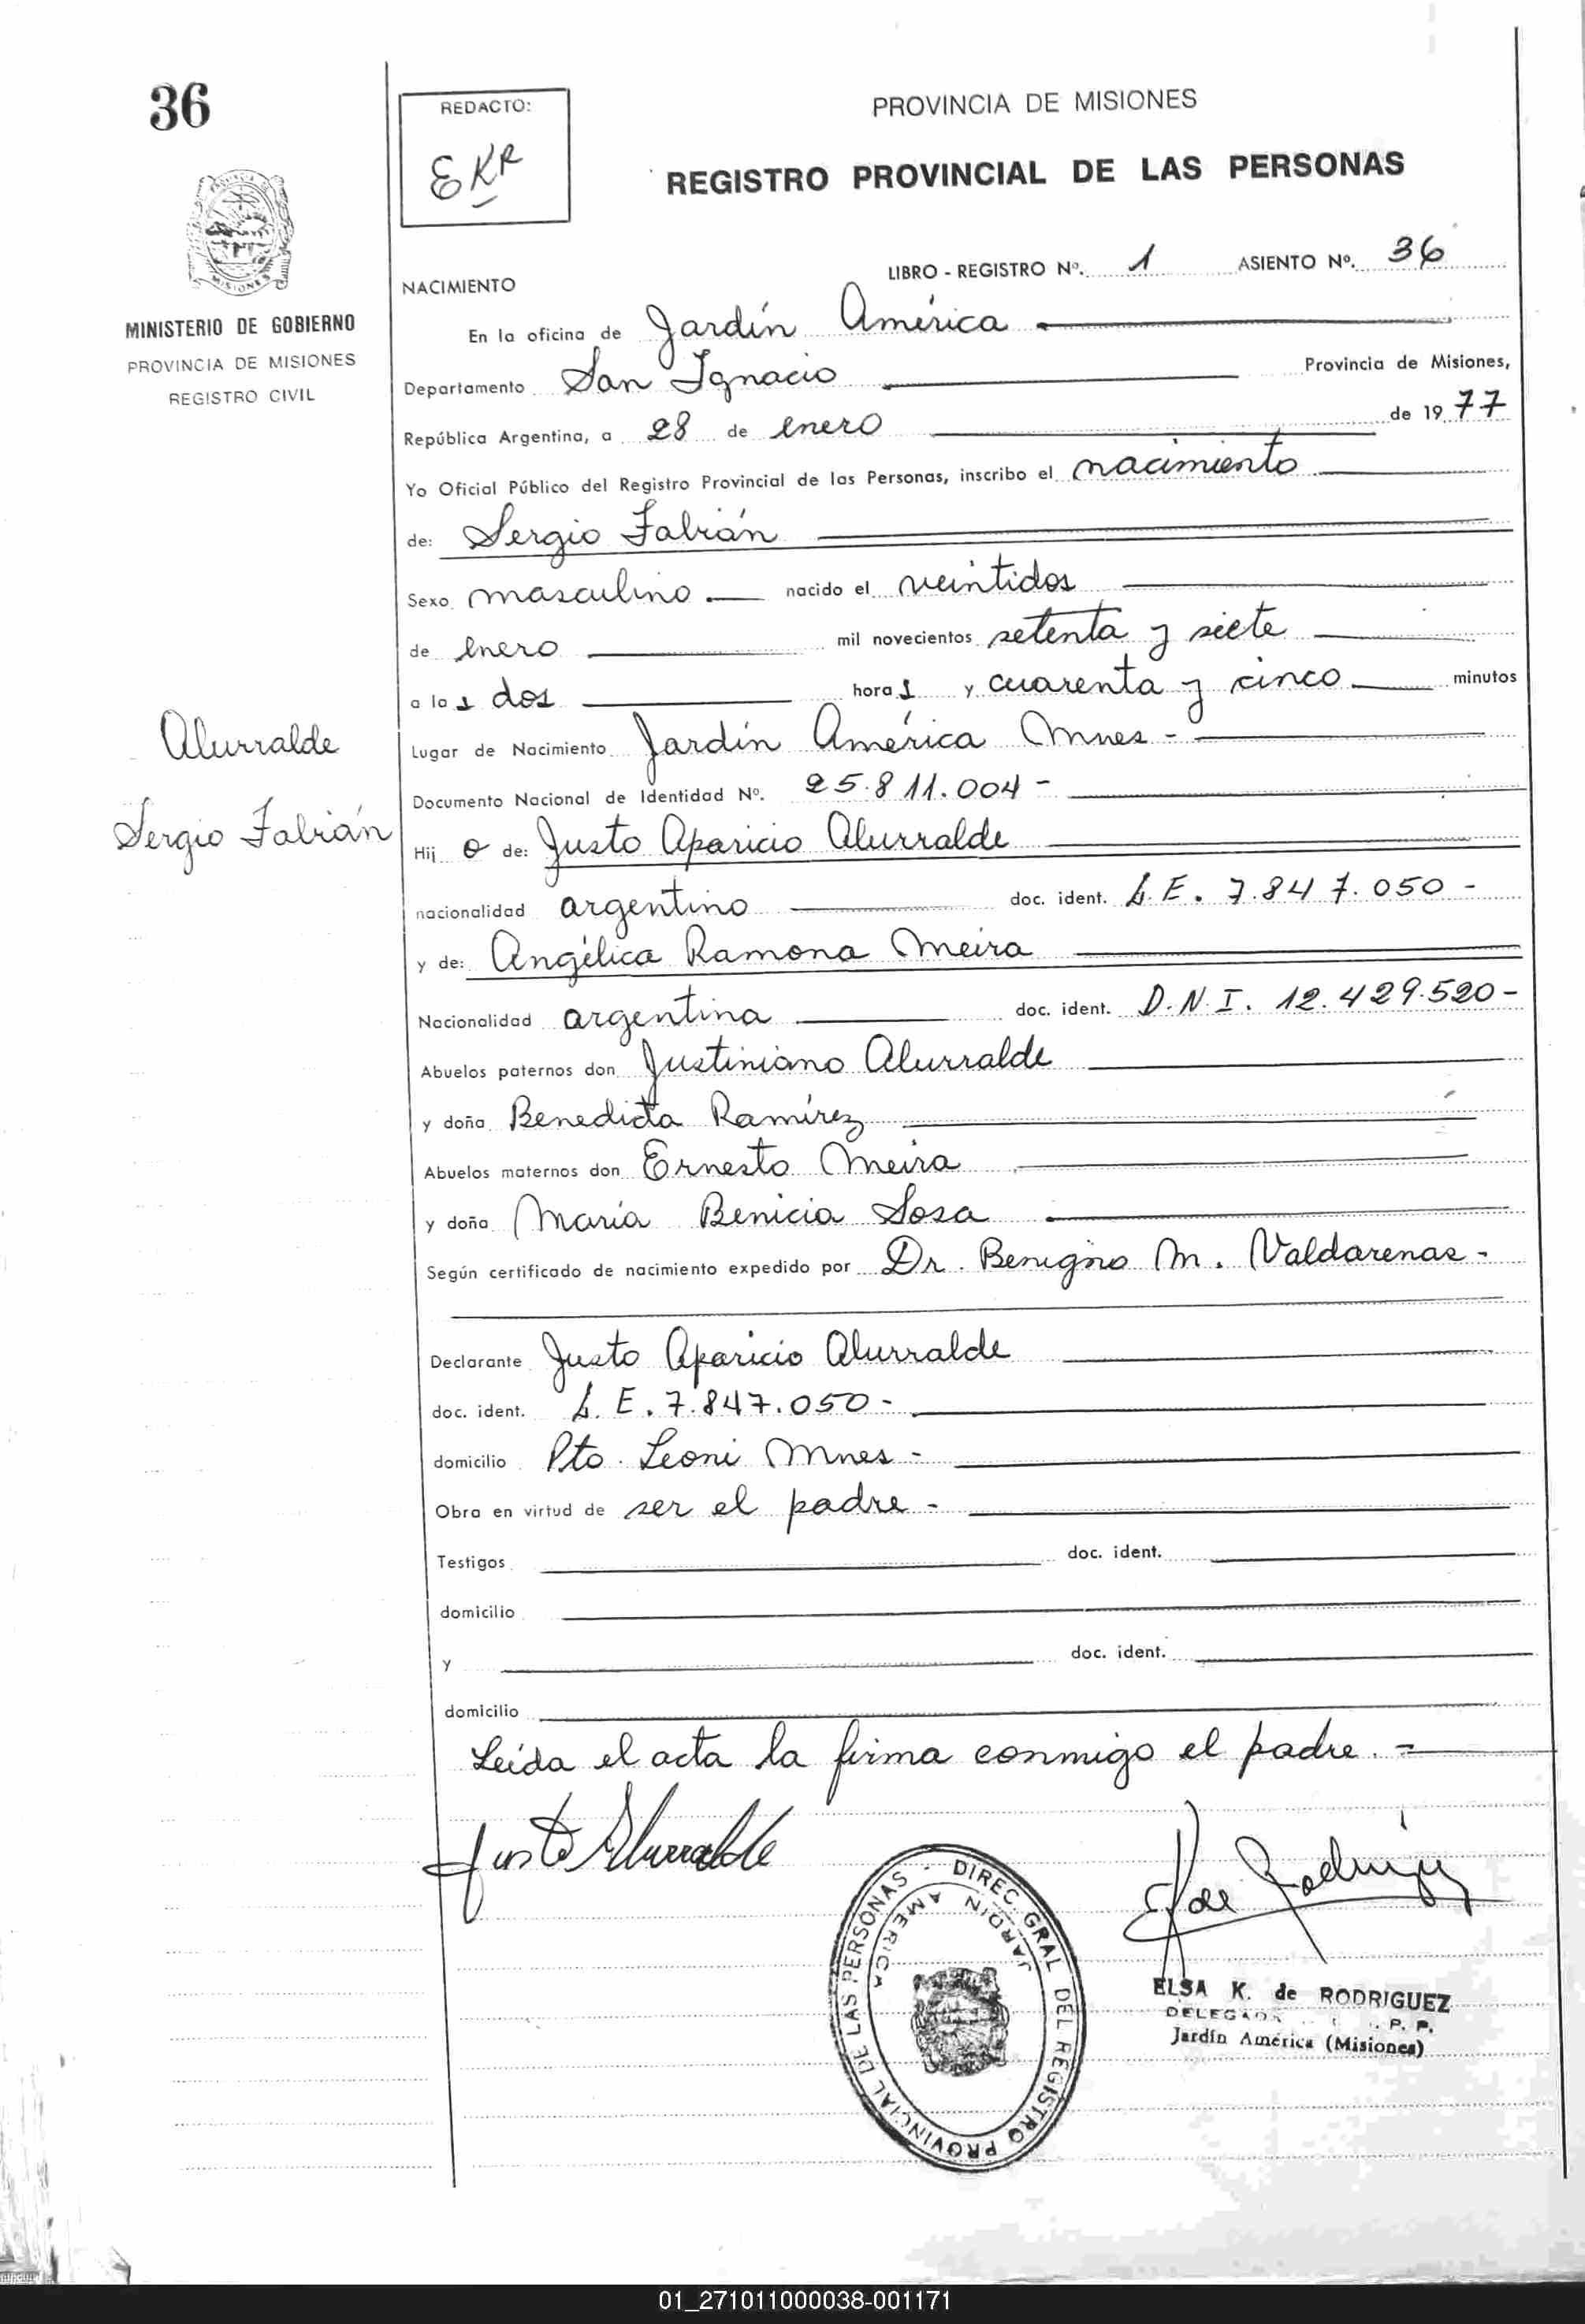 36
REDACTO:
EKR
PROVINCIA DE MISIONES
REGISTRO PROVINCIAL DE LAS PERSONAS
MISIONES
MINISTERIO DE GOBIERNO
PROVINCIA DE MISIONES
REGISTRO CIVIL
LIBRO - REGISTRO Nº. 1 ASIENTO Nº. 36
NACIMIENTO
En la oficina de Jardín América
Departamento San Ignacio Provincia de Misiones,
República Argentina, a 28 de enero de 1977
Yo Oficial Público del Registro Provincial de las Personas, inscribo el nacimiento
de: Sergio Fabián
Sexo masculino nacido el veintidos
de enero mil novecientos setenta y siete
a las dos horas y cuarenta y cinco minutos
Lugar de Nacimiento Jardín América Mnes -
Alurralde
Sergio Fabián
Documento Nacional de Identidad Nº. 25.811.004 -
Hijo de: Justo Aparicio Alurralde
nacionalidad argentino doc. ident. L.E. 7.847.050 -
y de: Angélica Ramona Meira
Nacionalidad argentina doc. ident. D.N.I. 12.429.520 -
Abuelos paternos don Justiniano Alurralde
y doña Benedicta Ramírez
Abuelos maternos don Ernesto Meira
y doña María Benicia Sosa
Según certificado de nacimiento expedido por Dr. Benigno M. Valdarenas -
Declarante Justo Aparicio Alurralde
doc. ident. L.E. 7.847.050 -
domicilio Pto. Leoni Mnes -
Obra en virtud de ser el padre -
Testigos doc. ident.
domicilio
y doc. ident.
domicilio
Leída el acta la firma conmigo el padre. =
Justo Alurralde
DIREC. GRAL DEL REGISTRO PROVINCIAL DE LAS PERSONAS -
JARDIN AMERICA
ELSA K. de RODRIGUEZ
DELEGADA P. P.
Jardín América (Misiones)
01_271011000038-001171